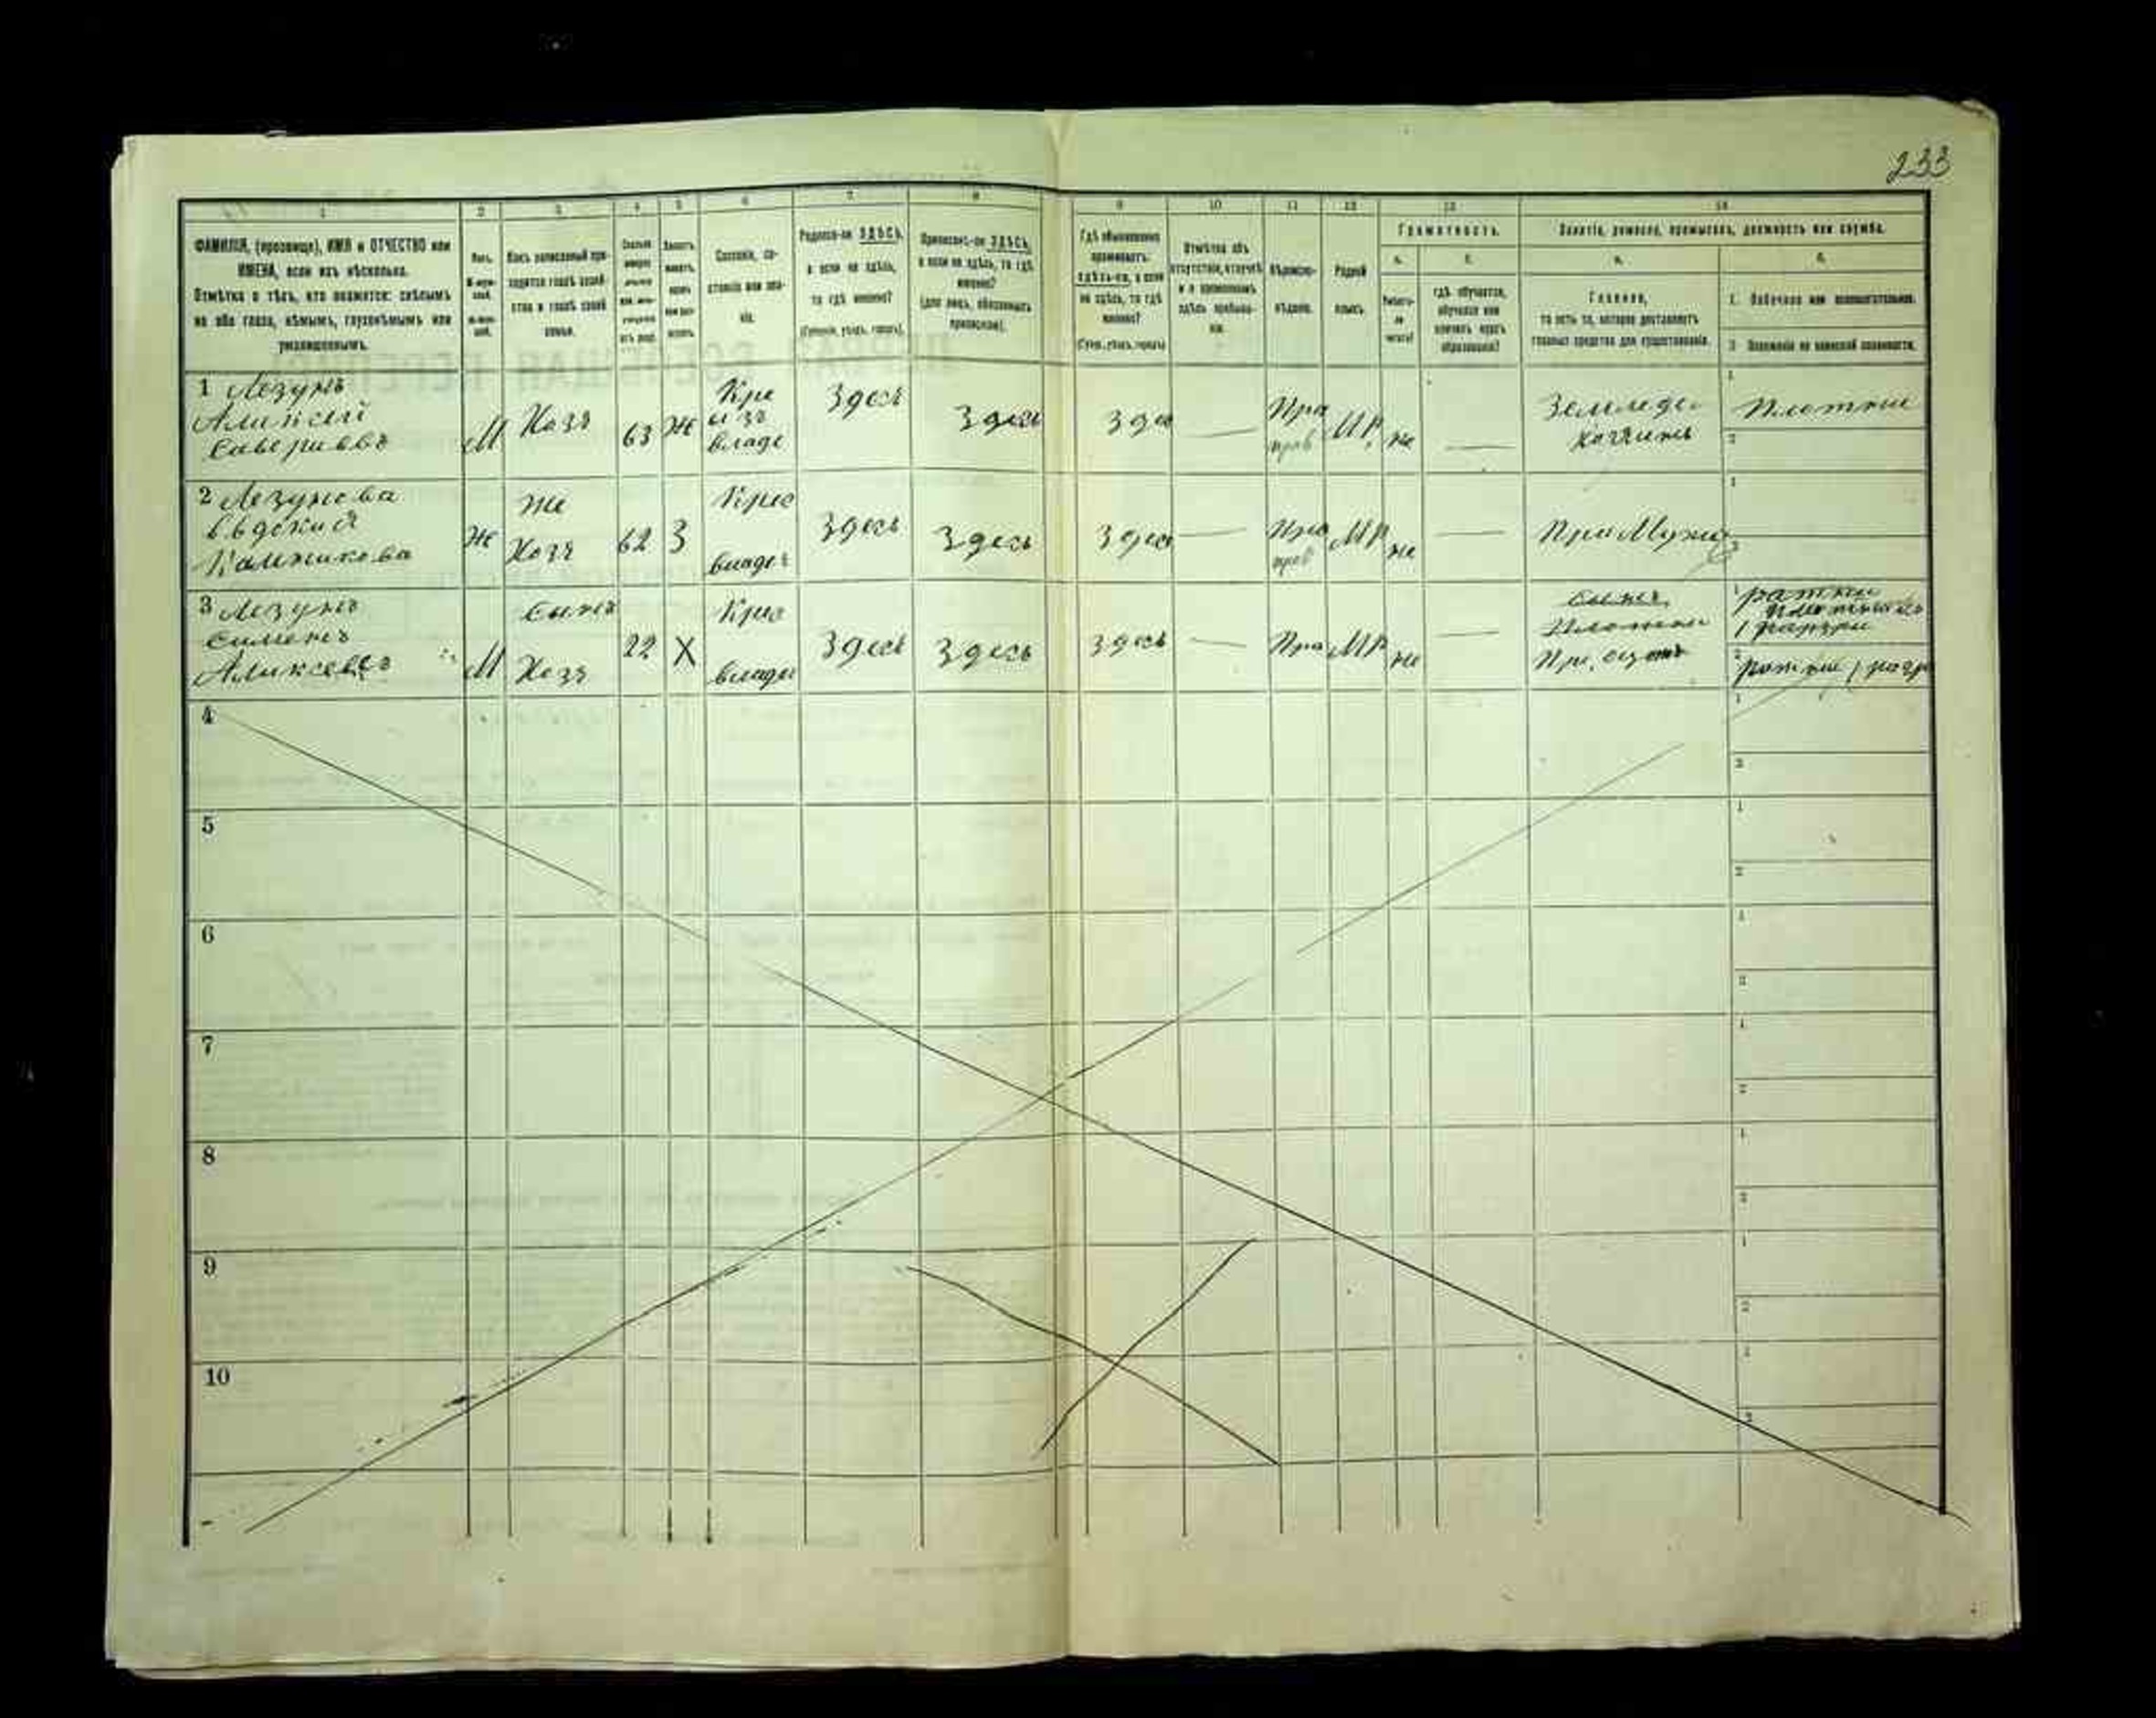 233
1 2 3 4 5 6 7 8 9 10 11 12 13 14
ФАМИЛІЯ, (прозвище), ИМЯ и ОТЧЕСТВО или
ИМЕНА, если ихъ нѣсколько.
Отмѣтка о тѣхъ, кто окажется: слѣпымъ
на оба глаза, нѣмымъ, глухонѣмымъ или
умалишеннымъ.
Какъ записанный при-
ходится главѣ хозяй-
ства и главѣ своей
семьи.
Сословіе, со-
стояніе или зва-
ніе.
Родился-ли ЗДѢСЬ,
а если не здѣсь,
то гдѣ именно?
(Губернія, уѣздъ, городъ).
Приписанъ-ли ЗДѢСЬ,
а если не здѣсь, то гдѣ
именно?
(для лицъ, обязанныхъ
припискою).
Гдѣ обыкновенно
проживаетъ:
здѣсь-ли, а если
не здѣсь, то гдѣ
именно?
(Губ., уѣздъ, городъ)
Отмѣтка объ
отсутствіи, отлучкѣ
и о временномъ
здѣсь пребыва-
ніи.
Вѣроиспо-
вѣданіе.
Родной
языкъ.
Грамотность.
а. б.
Умѣетъ-
ли
читать?
гдѣ обучается,
обучался или
кончилъ курсъ
образованія?
Занятіе, ремесло, промыселъ, должность или служба.
а. б.
Главное,
то есть то, которое доставляетъ
главныя средства для существованія.
1. Побочное или вспомогательное.
2. Положеніе по воинской повинности.
1 Лезунъ
Аликсей
Савериввъ
М
Хозъ
63
Же
Кре
изъ
владе
Здесь
Здесь
Здес
—
Пра
прав
МР
не
—
Земледе.
хозяинъ
1 Плотни
2
2 Лезунова
Евдокия
Же
же
Хозъ
62
З
Крес
владе
Здесь
Здесь
Здес
—
Пра
прав
МР
не
—
При Мужи
1
2
3 Лезунъ
Сименъ
Аликсеевъ
М
Сынъ
Хозъ
22
Х
Крес
владе
Здесь
Здесь
Здесь
—
Пра
МР
не
—
Сынъ
Плотни
При отцы
1 ратни
1 разря
2 ратни 1 разр
4
5
6
7
8
9
10